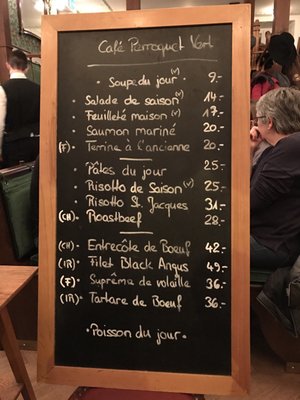 Café Perroquet Vert
• Soupe du jour (v) 9.-
• Salade de saison (v) 14.-
• Feuilleté maison (v) 17.-
• Saumon mariné 20.-
(F) • Terrine à l'ancienne 20.-
• Pâtes du jour 25.-
• Risotto de Saison (v) 25.-
• Risotto St. Jacques 31.-
(CH) • Roastbeef 28.-
(CH) • Entrecôte de Boeuf 42.-
(IR) • Filet Black Angus 49.-
(F) • Suprême de volaille 36.-
(IR) • Tartare de Boeuf 36.-
• Poisson du jour •